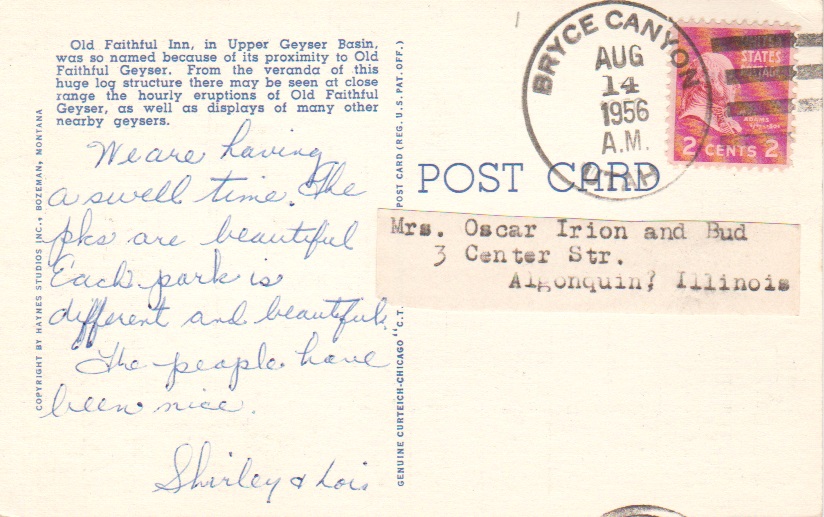 Old Faithful Inn, in Upper Geyser Basin,
was so named because of its proximity to Old
Faithful Geyser. From the veranda of this
huge log structure there may be seen at close
range the hourly eruptions of Old Faithful
Geyser, as well as displays of many other
nearby geysers.
We are having
a swell time. The
pks are beautiful
Each park is
different and beautiful.
The people have
been nice.
Shirley & Lois
COPYRIGHT BY HAYNES STUDIOS INC., BOZEMAN, MONTANA
GENUINE CURTEICH-CHICAGO "C.T. POST CARD (REG. U.S. PAT. OFF.)
POST CARD
BRYCE CANYON
AUG
14
1956
A.M.
UTAH
STATES
ADAMS
2 CENTS 2
Mrs. Oscar Irion and Bud
3 Center Str.
Algonquin, Illinois